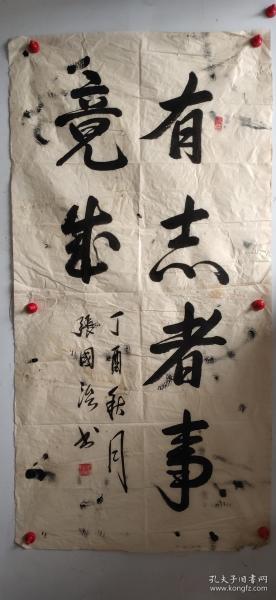 有志者事
竟成
丁酉秋月
張國治书
孔夫子旧书网
www.kongfz.com